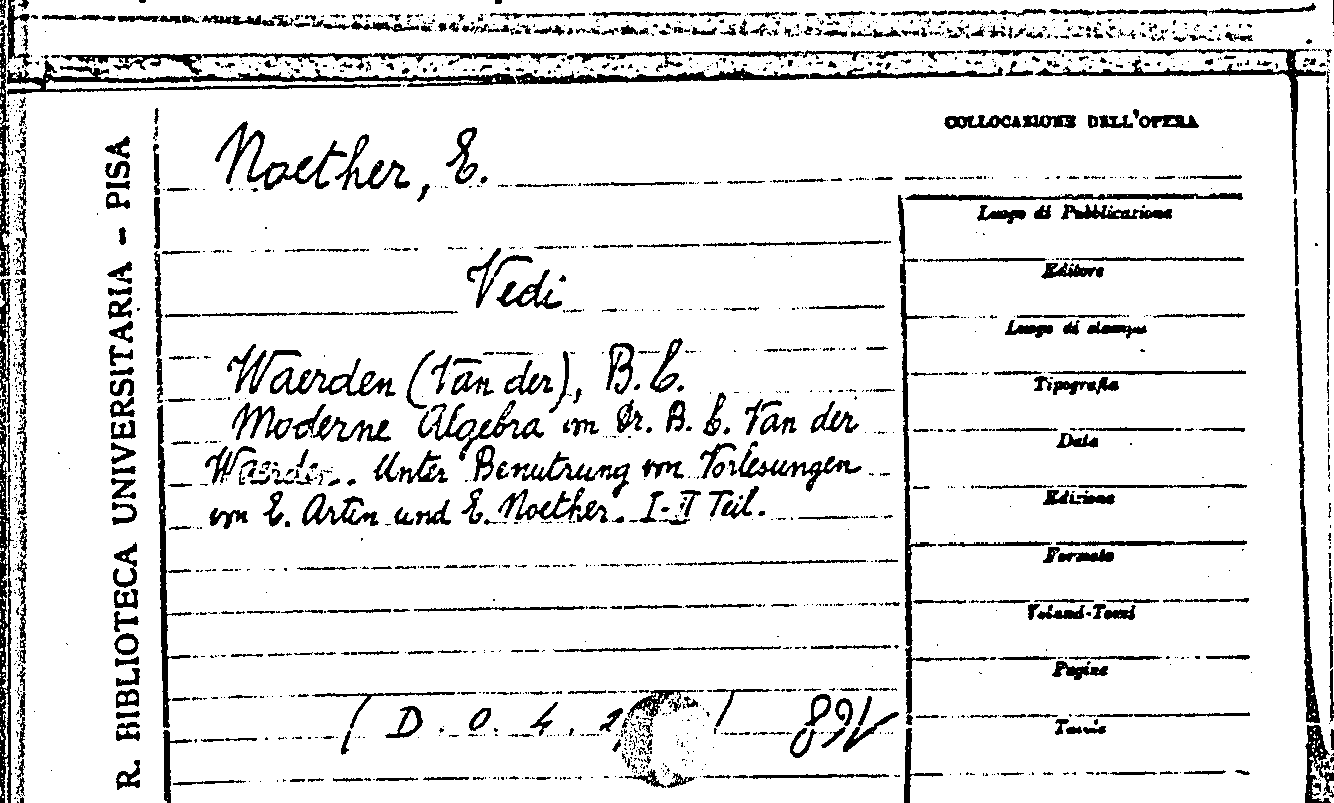 R. BIBLIOTECA UNIVERSITARIA - PISA
Noether, E.
Vedi
Waerden (Van der), B. L.
Moderne Algebra von Dr. B. L. Van der
Waerden. Unter Benutzung von Vorlesungen
von E. Artin und E. Noether. I-II Teil.
( D. O. 4. )
COLLOCAZIONE DELL'OPERA
Luogo di Pubblicazione
Editore
Luogo di stampa
Tipografia
Data
Edizione
Formato
Volumi-Tomi
Pagine
Tavole